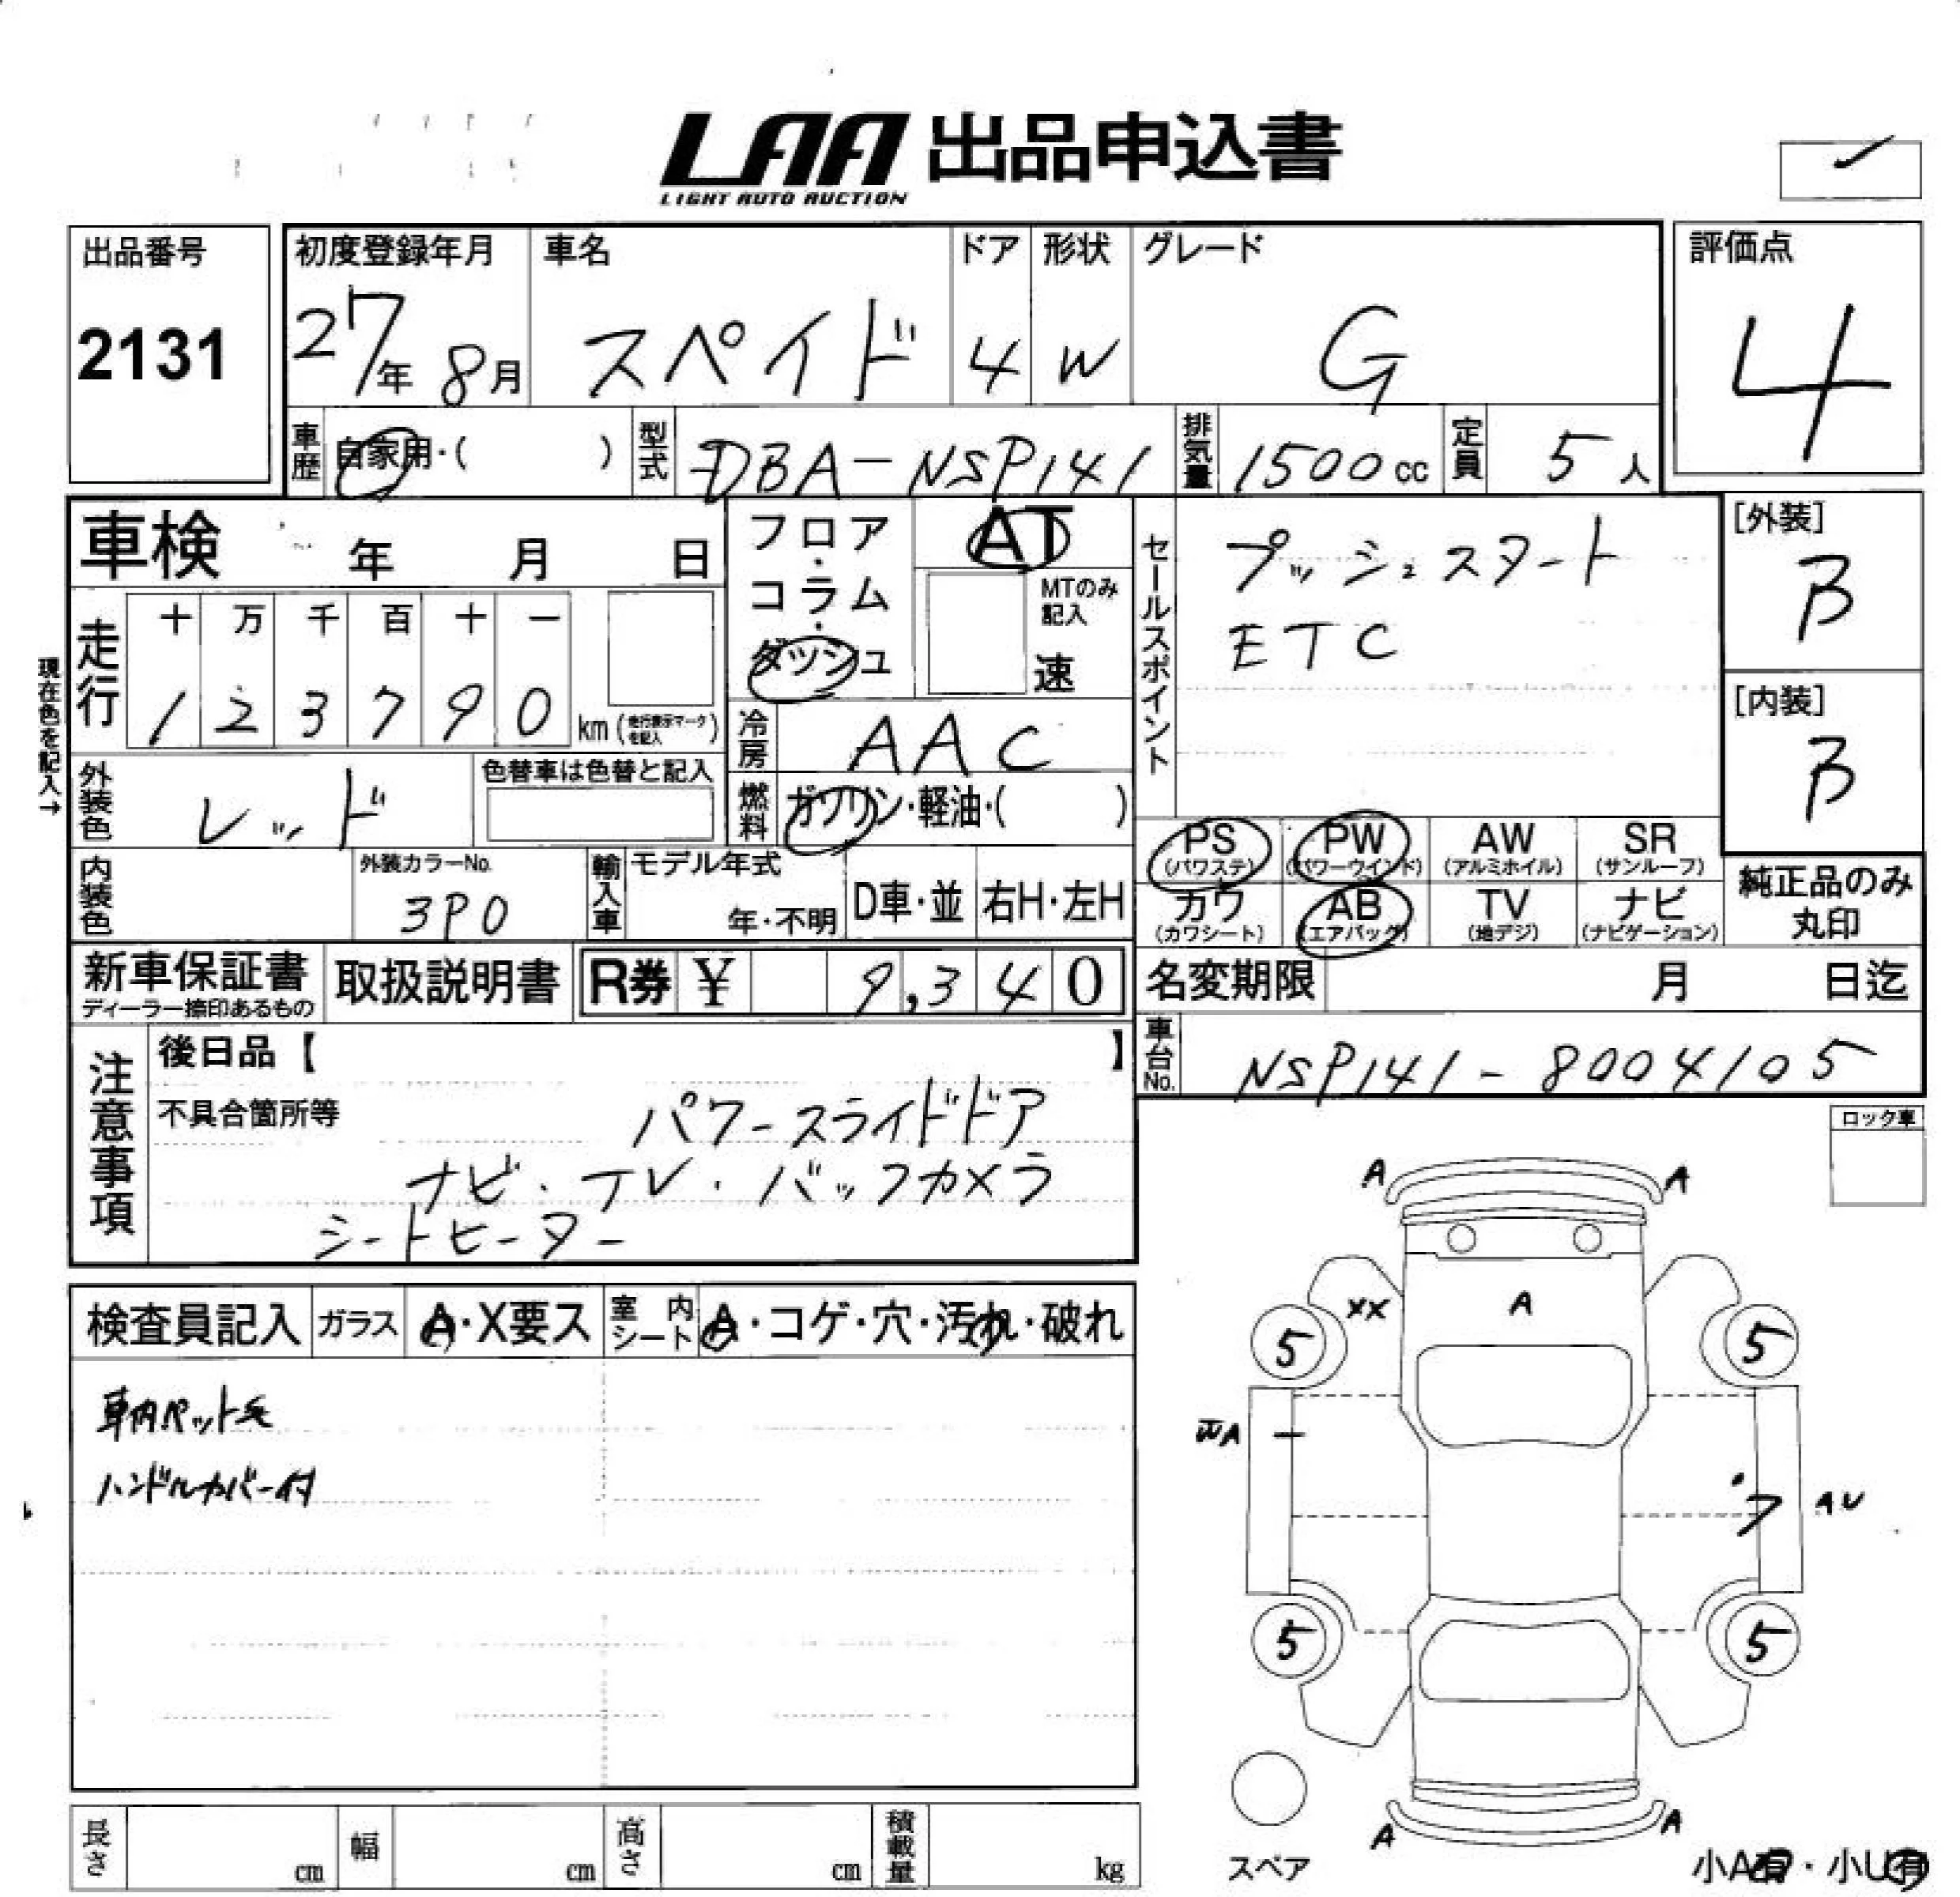 LAA 出品申込書
LIGHT AUTO AUCTION
出品番号
2131
初度登録年月
27年 8月
車名
スペイド
ドア
4
形状
W
グレード
G
評価点
4
車歴
自家用・( )
型式
DBA-NSP141
排気量
1500cc
定員
5人
車検 年 月 日
フロア・コラム・ダッシュ
AT
MTのみ記入
速
セールスポイント
プッシュスタート
ETC
[外装]
B
[内装]
B
現在色を記入→
走行
十 万 千 百 十 一
1 2 3 7 9 0 km (走行表示マークを記入)
冷房
AAC
外装色
レッド
色替車は色替と記入
燃料
ガソリン・軽油・( )
内装色
外装カラーNo.
3P0
輸入車
モデル年式
年・不明
D車・並
右H・左H
PS (パワステ)
PW (パワーウインド)
AW (アルミホイル)
SR (サンルーフ)
カワ (カワシート)
AB (エアバッグ)
TV (地デジ)
ナビ (ナビゲーション)
純正品のみ
丸印
新車保証書
ディーラー捺印あるもの
取扱説明書
R券 ¥ 9,340
名変期限 月 日迄
車台No.
NSP141-8004105
注意事項
後日品【 】
不具合箇所等
パワースライドドア
ナビ・TV・バックカメラ
シートヒーター
ロック車
検査員記入
ガラス
A・X要ス
室内シート
A・コゲ・穴・汚れ・破れ
車内ペット毛
ハンドルカバー付
A A
XX A
5 5
A
AU
5 5
A A
スペア
小A有・小U有
長さ cm
幅 cm
高さ cm
積載量 kg